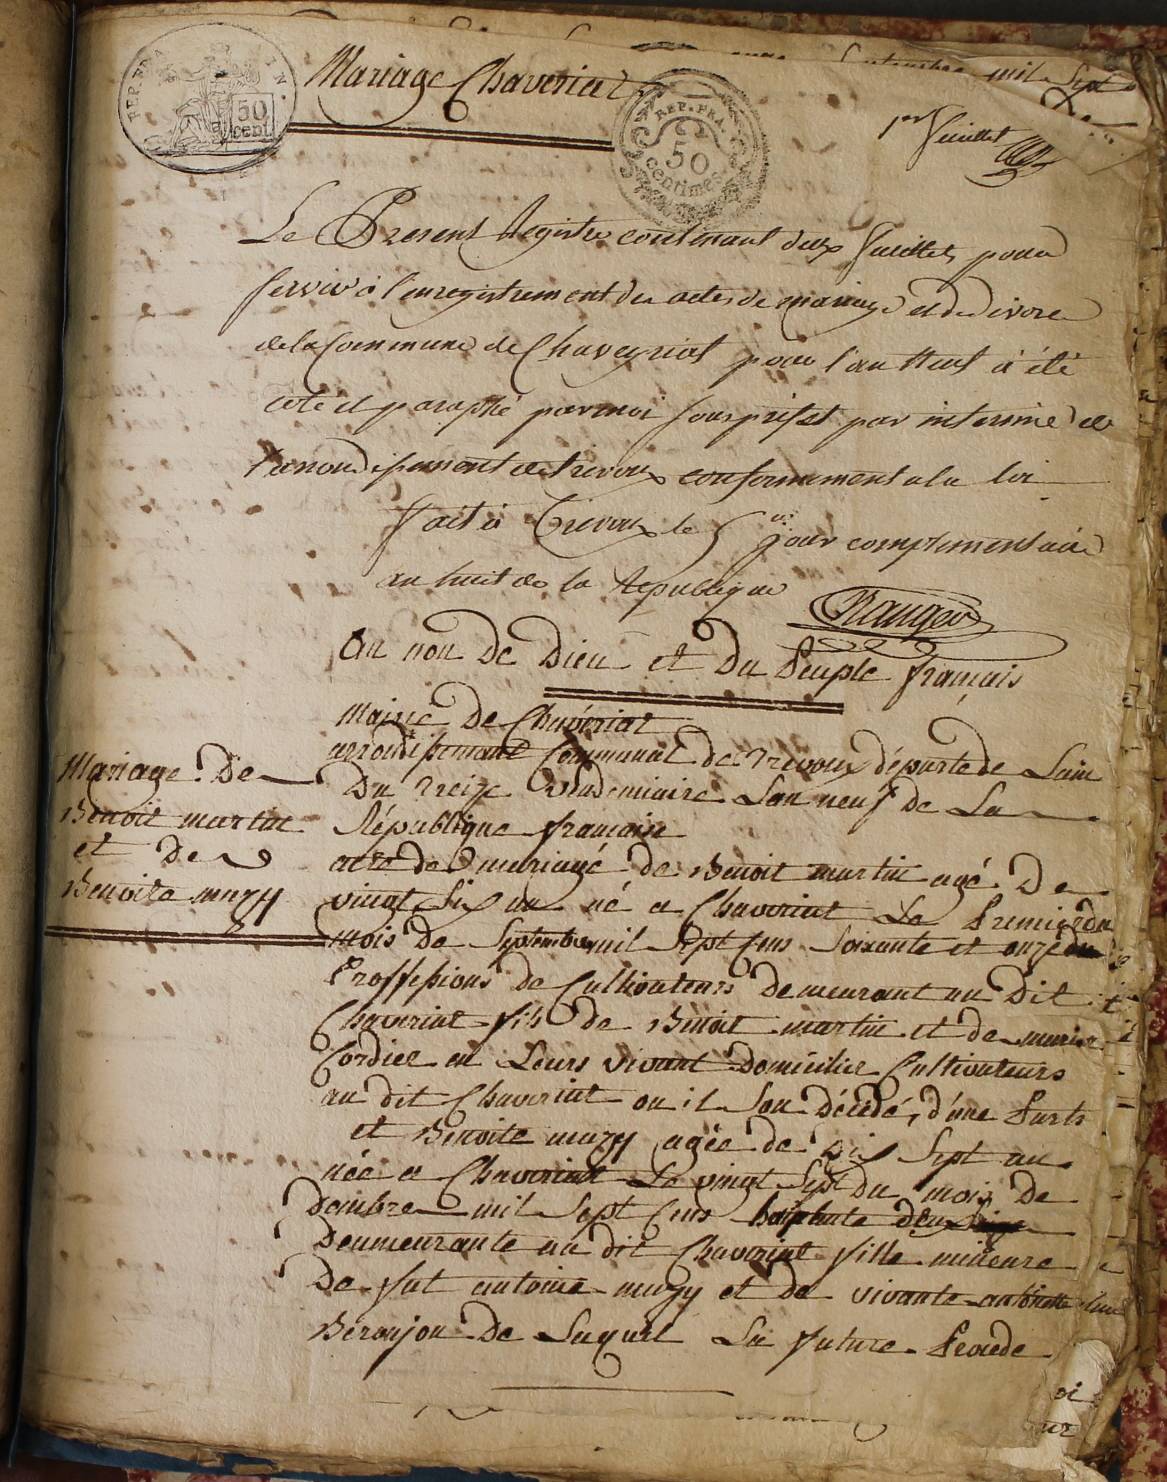 REP. FRA.
50
cent.
Mariage Chaveriat
REP. FRA.
50
centimes
mil Sept
1er feuillet
Le Present Registre contenant deux feuillets pour
servir à l'enregistrement des actes de mariage et de divorce
de la Commune de Chaveyriat pour l'an Neuf à été
coté et paraphé par moi sous prefet par interime de
l'arrondissement de Trevoux conformement a la loi
fait à Trevoux le 5 me jour complementaire
an huit de la Republique
au non De Dieu et Du Peuple français
Mairie De Chavériat
arrondissement Communal de Trevoux départe de Lain
Du Treize Vendemiaire Lan neuf de La
République française
acte de mariage de Benoit martin agé De
vingt Six an né a Chaveriat Le Premier du
mois De Septembre mil Sept Cens Soixante et onze
Proffessions de Cultivateurs Demeurant au Dit
Chaveriat fils De Benoit martin et de marie
Cordier en Leurs vivant Domicilier Cultivateurs
au dit Chaveriat ou il Son Décédé, d'une Parts
et Benoite muzy agée de Dix Sept an
née a Chaveriat Le vingt Sept Du mois De
mil Sept Cens
Deumeurante au dit Chaveriat fille mineure
De fut antoine muzy et de vivante antoinette
Beroujon De Laquel La future Procede
Mariage De
Benoit martin
et De
Benoite muzy